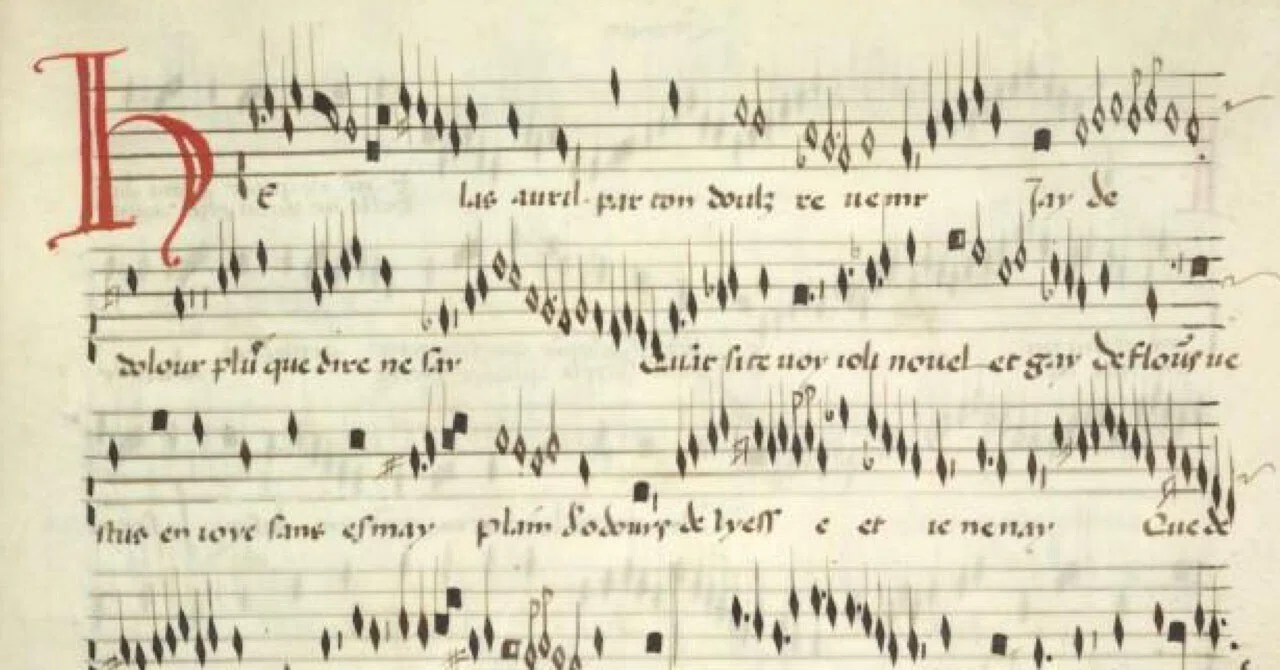 He las auril par ton doulz re uenir Jay de
dolour plus que dire ne say Quant si te uoy ioli nouel et gay de flours ue
stus en ioye sans esmay plain dodours de lyess e et ie nen ay Que de